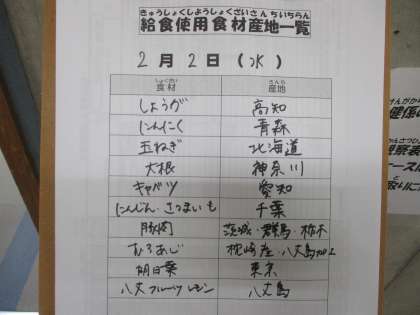 きゅうしょくしようしょくざいさんちいちらん
給食使用食材産地一覧
2月2日(水)
しょくざい さんち
食材 産地
しょうが 高知
にんにく 青森
玉ねぎ 北海道
大根 神奈川
キャベツ 愛知
にんじん・さつまいも 千葉
豚肉 茨城・群馬・栃木
むろあじ 枕崎産・八丈島加工
明日葉 東京
八丈フルーツレモン 八丈島